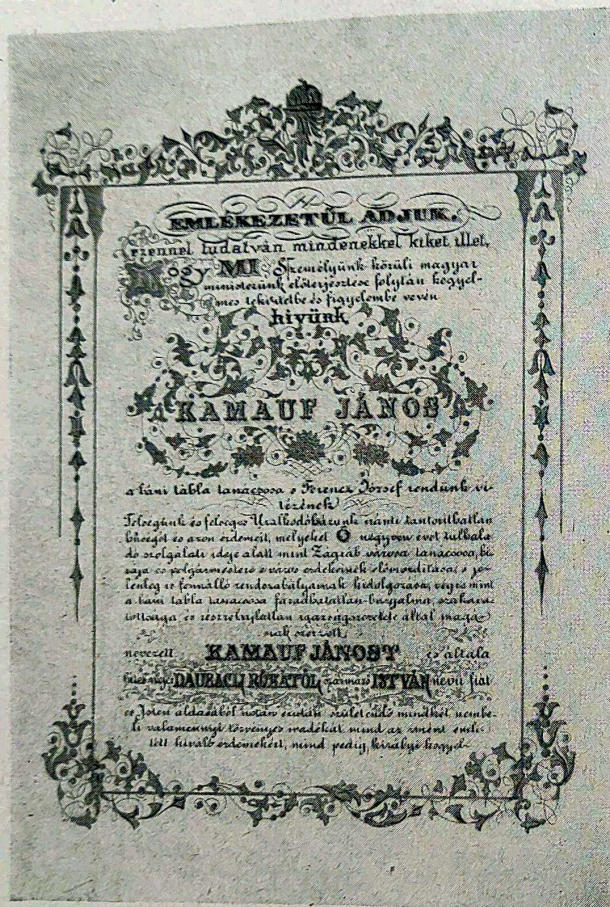 EMLÉKEZETŰL ADJUK.
ezennel tudatván mindenekkel kiket illet,
Hogy MI Személyünk körüli magyar
ministerünk előterjesztése folytán kegyel-
mes tekintetbe és figyelembe vevén
hivünk
KAMAUF JÁNOS
a báni tábla tanácsosa s Ferencz József rendünk vi-
tézének
Felségünk és felséges Uralkodóházunk iránti tántorithatlan
hűségét és azon érdemeit, melyeket Ő negyven évet túlhala-
dó szolgálati ideje alatt mint Zágráb városa tanácsosa, bi-
rája és polgármestere a város érdekeinek előmozditása, s je-
lenleg is fennálló rendszabályainak kidolgozása, végre mint
a báni tábla tanácsosa fáradhatatlan buzgalma, szakava-
tottsága és részrehajlatlan igazságszeretete által magá-
nak szerzett
nevezett KAMAUF JÁNOST és általa
DAUBACH RÓZÁTÓL származó ISTVÁN nevü fiát
és Isten áldásából ezután születendő mindkét nembe-
li valamennyi törvényes ivadékát mind az imént emli-
tett kiváló érdemekért, mind pedig királyi kegyel-